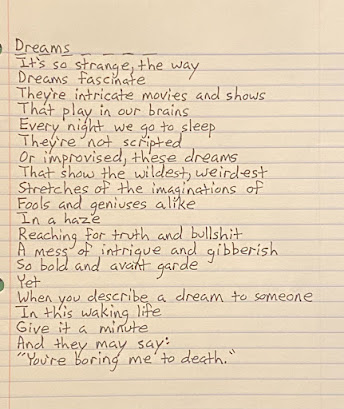 Dreams
It's so strange, the way
Dreams fascinate
They're intricate movies and shows
That play in our brains
Every night we go to sleep
They're not scripted
Or improvised, these dreams
That show the wildest, weirdest
Stretches of the imaginations of
Fools and geniuses alike
In a haze
Reaching for truth and bullshit
A mess of intrigue and gibberish
So bold and avant garde
Yet
When you describe a dream to someone
In this waking life
Give it a minute
And they may say:
"You're boring me to death."